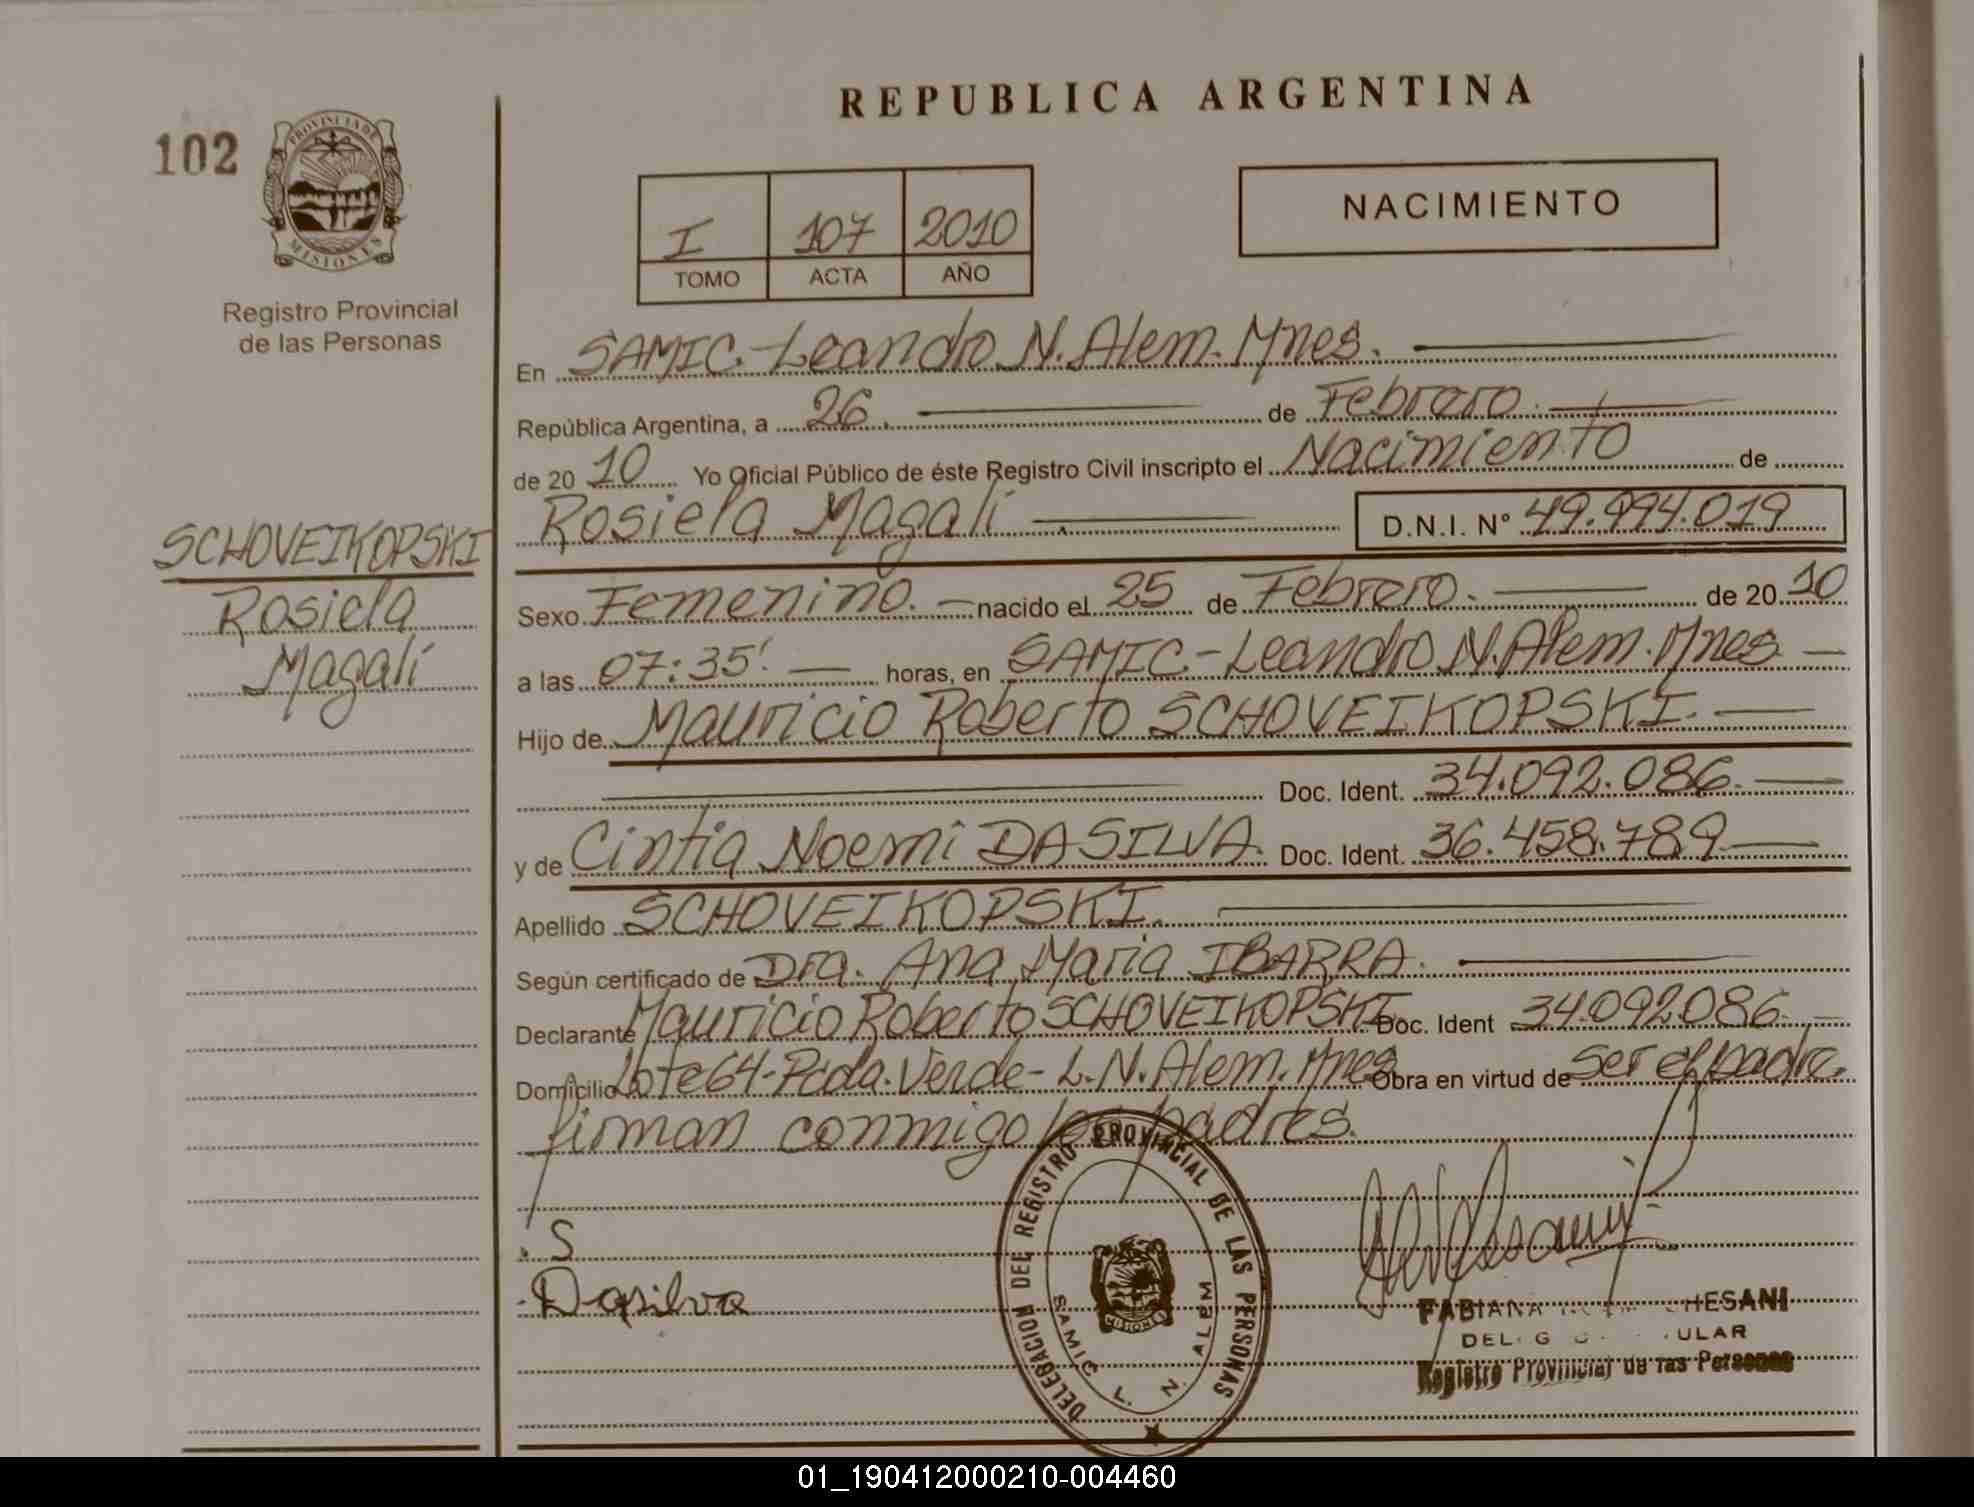 REPUBLICA ARGENTINA
102
PROVINCIA DE
MISIONES
Registro Provincial
de las Personas
I 107 2010
TOMO ACTA AÑO
NACIMIENTO
En SAMIC - Leandro N. Alem. Mnes.
República Argentina, a 26 de Febrero.
de 20 10 Yo Oficial Público de éste Registro Civil inscripto el Nacimiento de
Rosiela Magalí D.N.I. N° 49.994.019
SCHOVEIKOPSKI
Rosiela
Magalí
Sexo Femenino. nacido el 25 de Febrero. de 20 10
a las 07:35' horas, en SAMIC - Leandro N. Alem. Mnes
Hijo de Mauricio Roberto SCHOVEIKOPSKI.
Doc. Ident. 34.092.086.
y de Cintia Noemi DA SILVA. Doc. Ident. 36.458.789
Apellido SCHOVEIKOPSKI.
Según certificado de Dra. Ana Maria IBARRA.
Declarante Mauricio Roberto SCHOVEIKOPSKI Doc. Ident 34.092.086.
Domicilio Lote 64 - Pcda. Verde - L. N. Alem. Mnes Obra en virtud de ser el padre.
firman conmigo los padres.
S
Dasilva
DELEGACION DEL REGISTRO PROVINCIAL DE LAS PERSONAS
MISIONES
SAMIC L. N. ALEM
FABIANA
Registro Provincial de las Personas
01_190412000210-004460